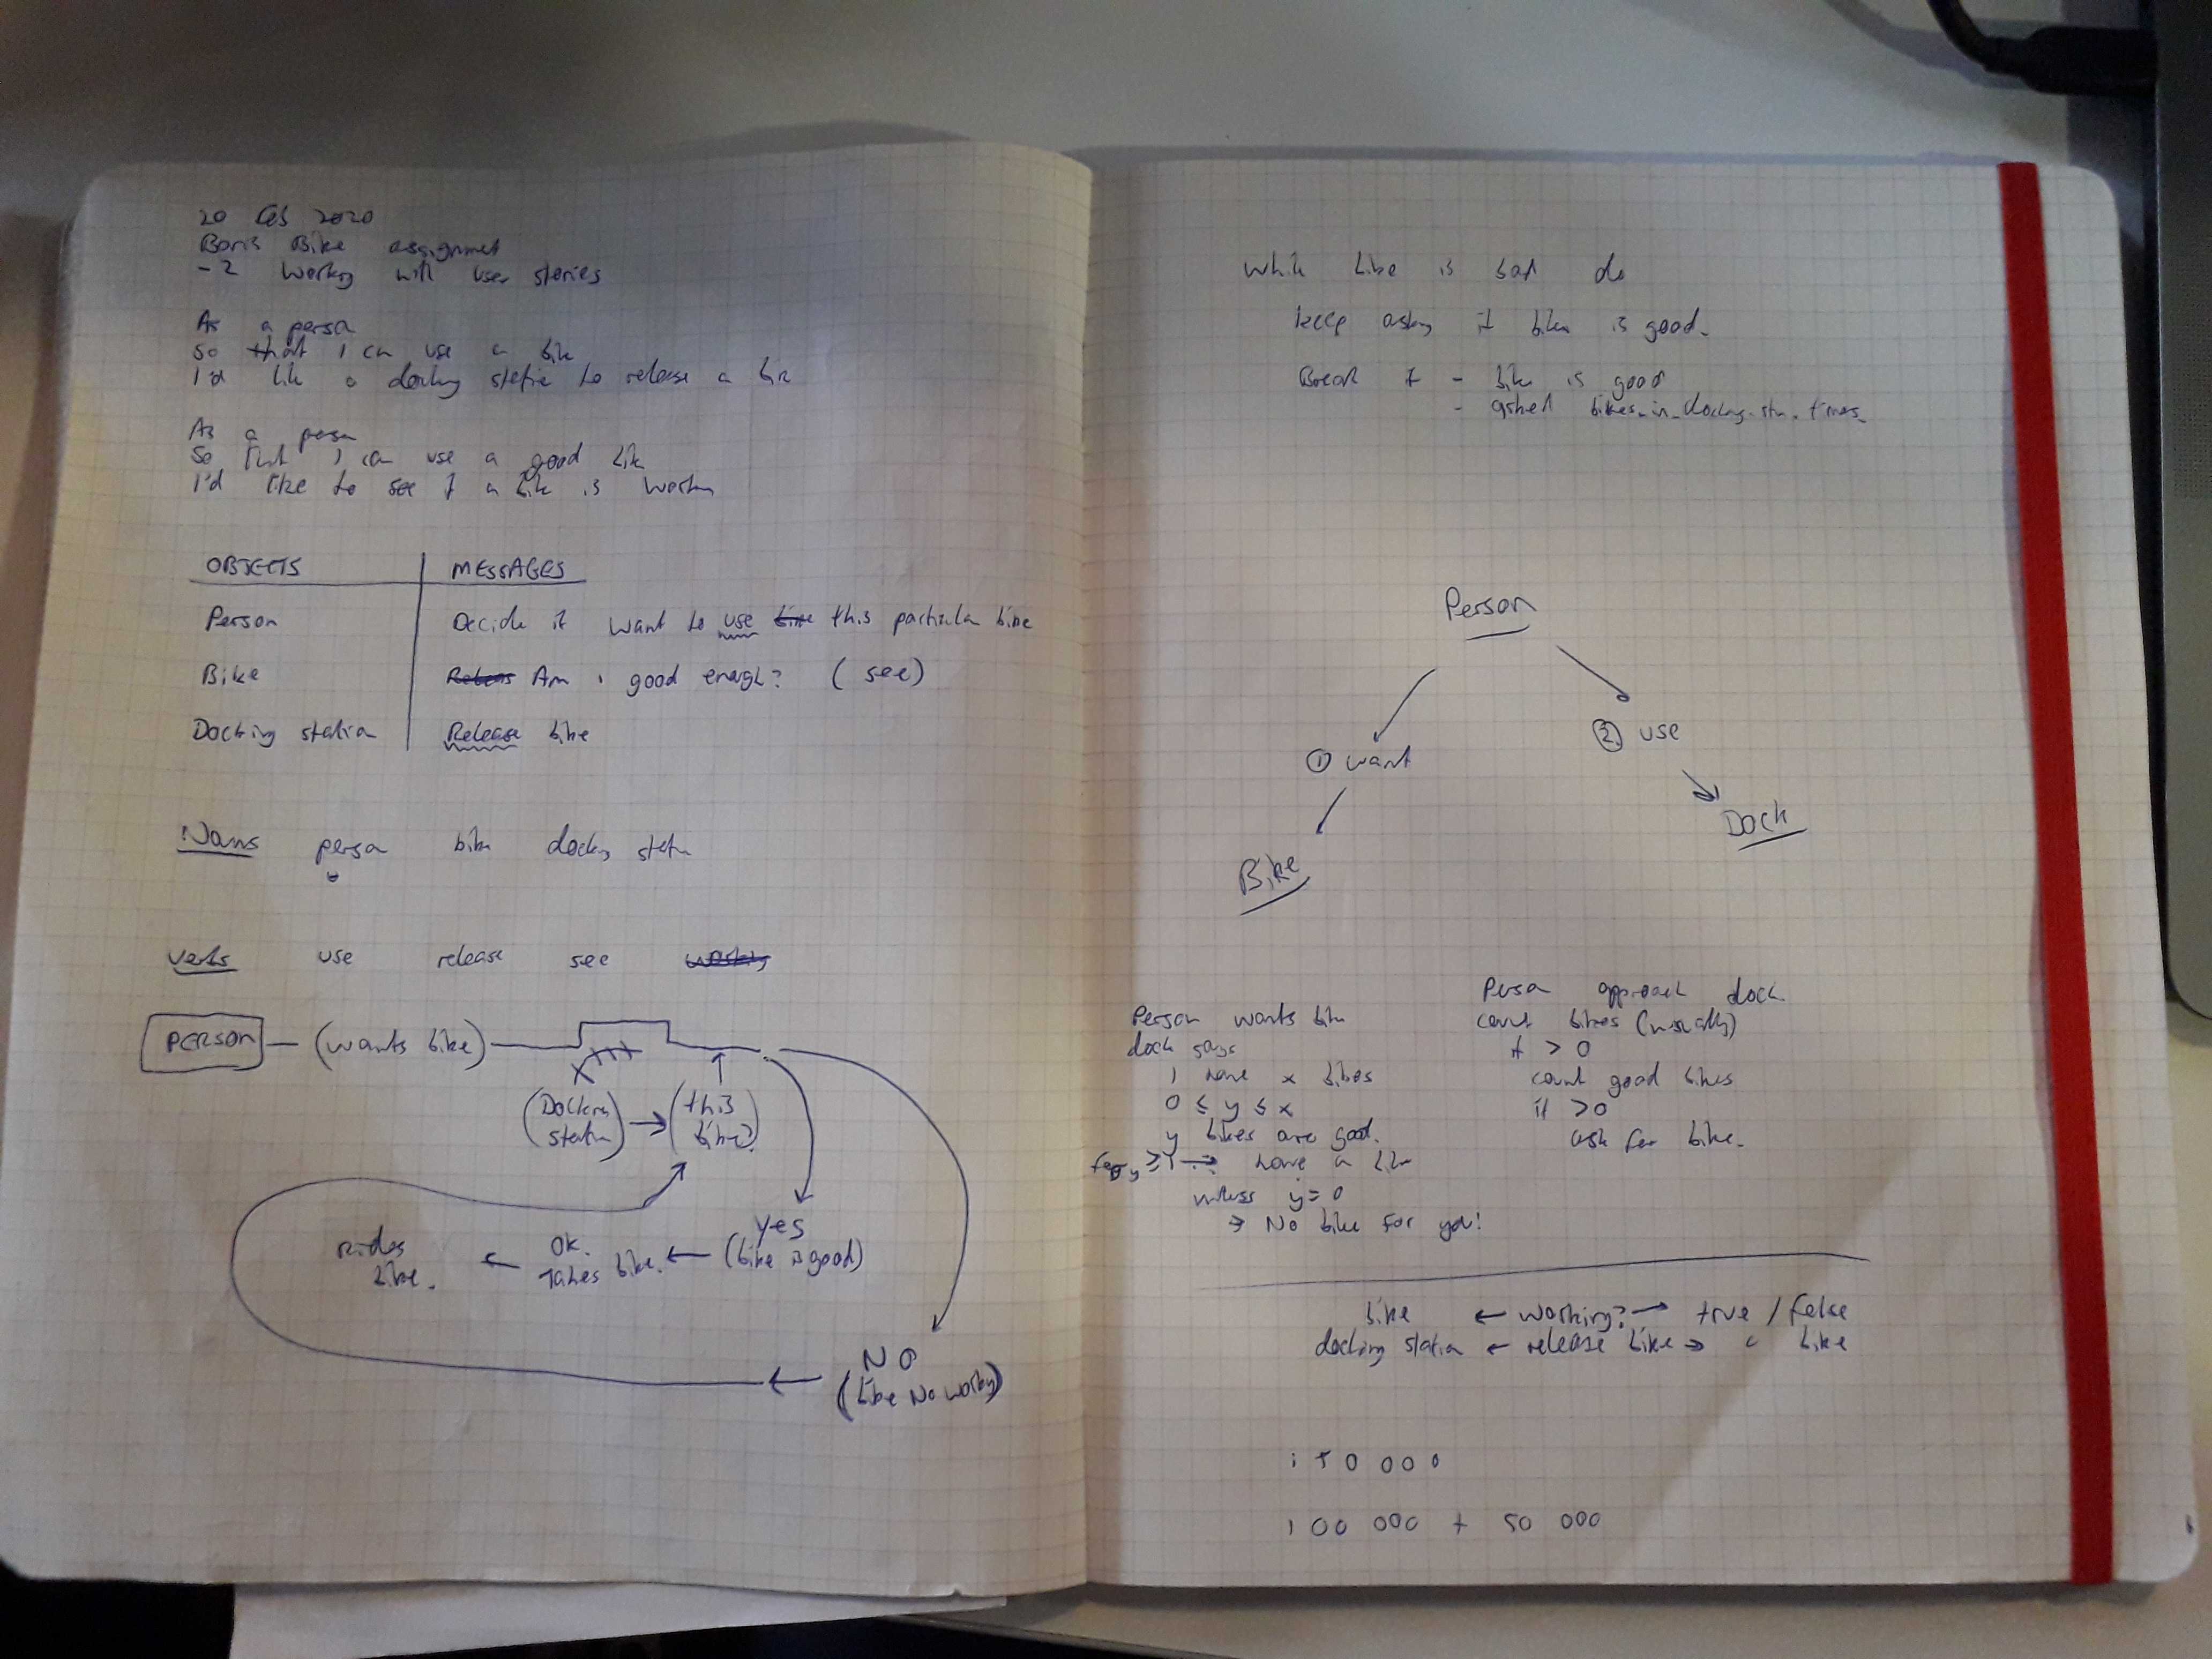 20 Feb 2020
Boris Bike assignment
-2 Working with user stories
As a person
so that I can use a bike
I'd like a docking station to release a bike
As a person
So that I can use a good bike
I'd like to see if a bike is working
OBJECTS MESSAGES
Person Decide if want to use bike this particular bike
Bike Am I good enough? (see)
Docking station Release bike
Nouns person bike docking station
verbs use release see working
PERSON (wants bike)
(Docking station) → (this bike?)
yes
(bike is good) ← OK. Takes bike. ← Rides bike.
NO
(bike No working)
While bike is bad do
keep asking if bike is good.
Break if - bike is good
- asked bikes_in_docking_stn. times.
Person
① want
② use
Bike
Dock
Person wants bike
dock says
I have x bikes
0 ≤ y ≤ x
y bikes are good.
y ≥ 1 → have a bike
unless y = 0
→ No bike for you!
Person approach dock
count bikes (visually)
if > 0
count good bikes
if >0
ask for bike.
bike ← working? → true / false
docking station ← release bike → a bike
150 000
100 000 + 50 000